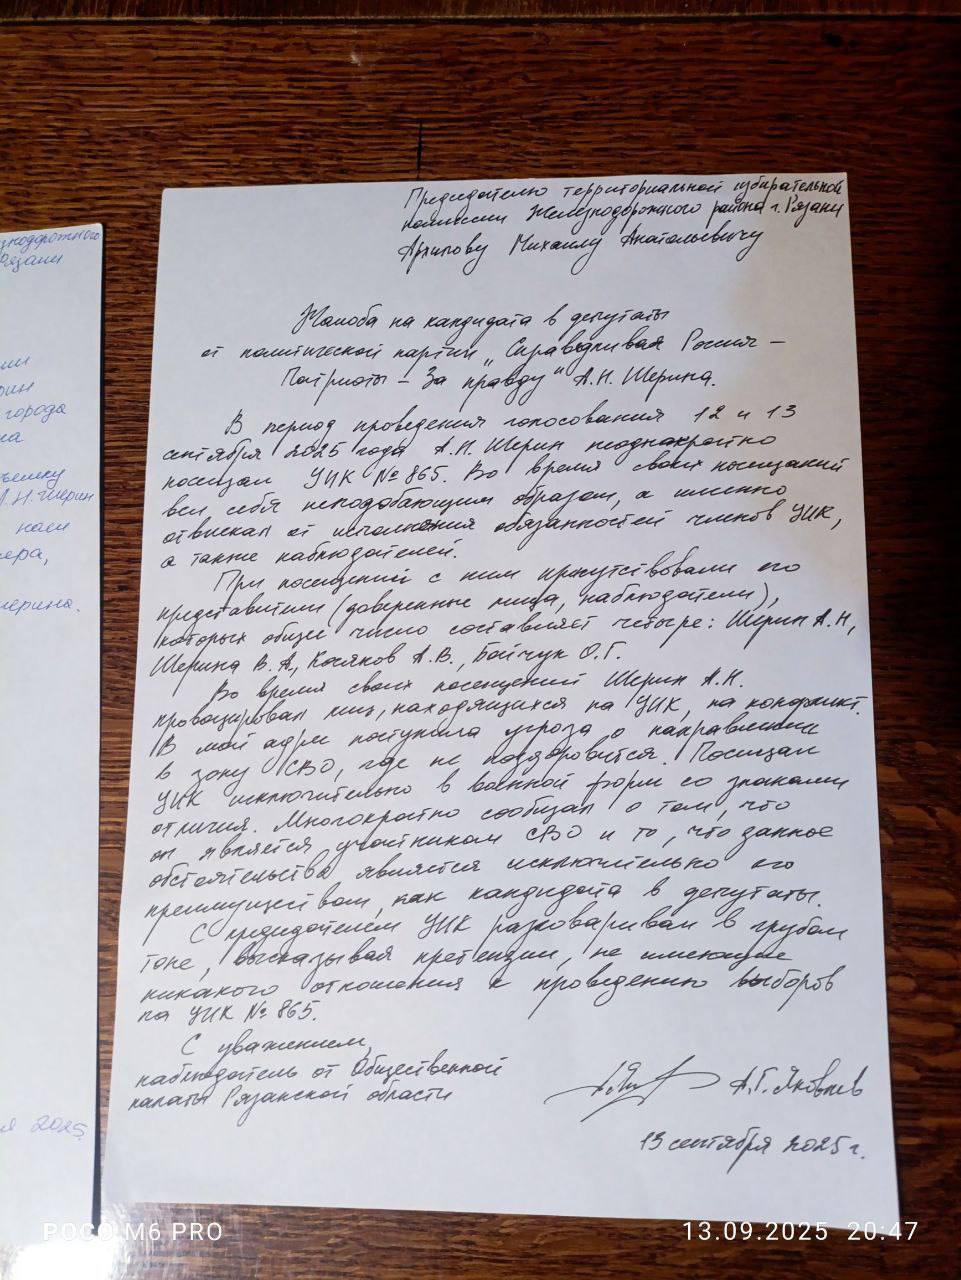 Председателю территориальной избирательной
комиссии Железнодорожного района г. Рязани
Архипову Михаилу Анатольевичу
Жалоба на кандидата в депутаты
от политической партии „Справедливая Россия –
Патриоты – За правду" А.Н. Шерина.
В период проведения голосования 12 и 13
сентября 2025 года А.Н. Шерин неоднократно
посещал УИК № 865. Во время своих посещений
вел себя неподобающим образом, а именно
отвлекал от исполнения обязанностей членов УИК,
а также наблюдателей.
При посещении с ним присутствовали его
представители (доверенные лица, наблюдатели),
которых общее число составляет четыре: Шерин А.Н,
Шерина В.А, Косяков А.В., Бойчук О.Г.
Во время своих посещений Шерин А.Н.
провоцировал лиц, находящихся на УИК, на конфликт.
В мой адрес поступила угроза о направлении
в зону СВО, где не поздоровится. Посещал
УИК исключительно в военной форме со знаками
отличия. Многократно сообщал о том, что
он является участником СВО и то, что данное
обстоятельство является исключительно его
преимуществом, как кандидата в депутаты.
С председателем УИК разговаривал в грубом
тоне, высказывал претензии, не имеющие
никакого отношения к проведению выборов
на УИК № 865.
С уважением,
наблюдатель от Общественной
палаты Рязанской области
А.Г. Яковлев
13 сентября 2025 г.
нодорожного
Рязани
ии
рин
города
на
ъемку
А.Н. Шерин
нали
ера,
ерина.
я 2025
POCO M6 PRO
13.09.2025 20:47